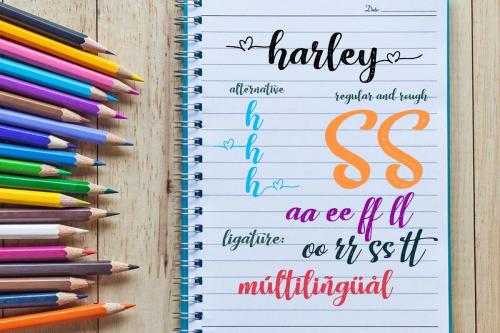 Date
harley
alternative
regular and rough
h
h
h
SS
aa ee ff ll
ligature:
oo rr ss tt
múltilíñgüål